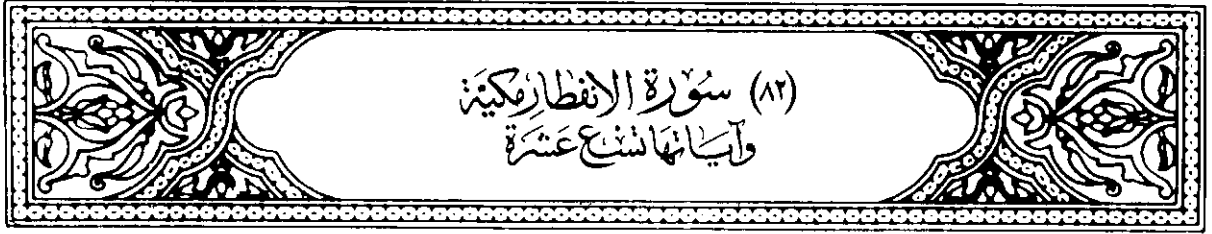 (٨٢) سُورَة الانفطارِ مكيَّة
وآيَاتها تسْع عَشَرَة